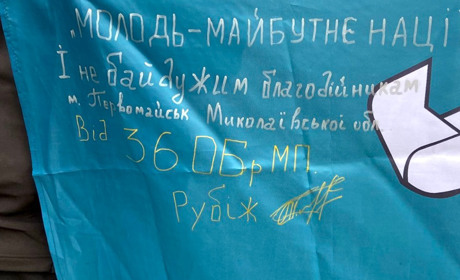 "МОЛОДЬ-МАЙБУТНЄ НАЦІ
І не байдужим благодійникам
м. Первомайськ Миколаївської обл.
Від 36 ОБр МП.
Рубіж